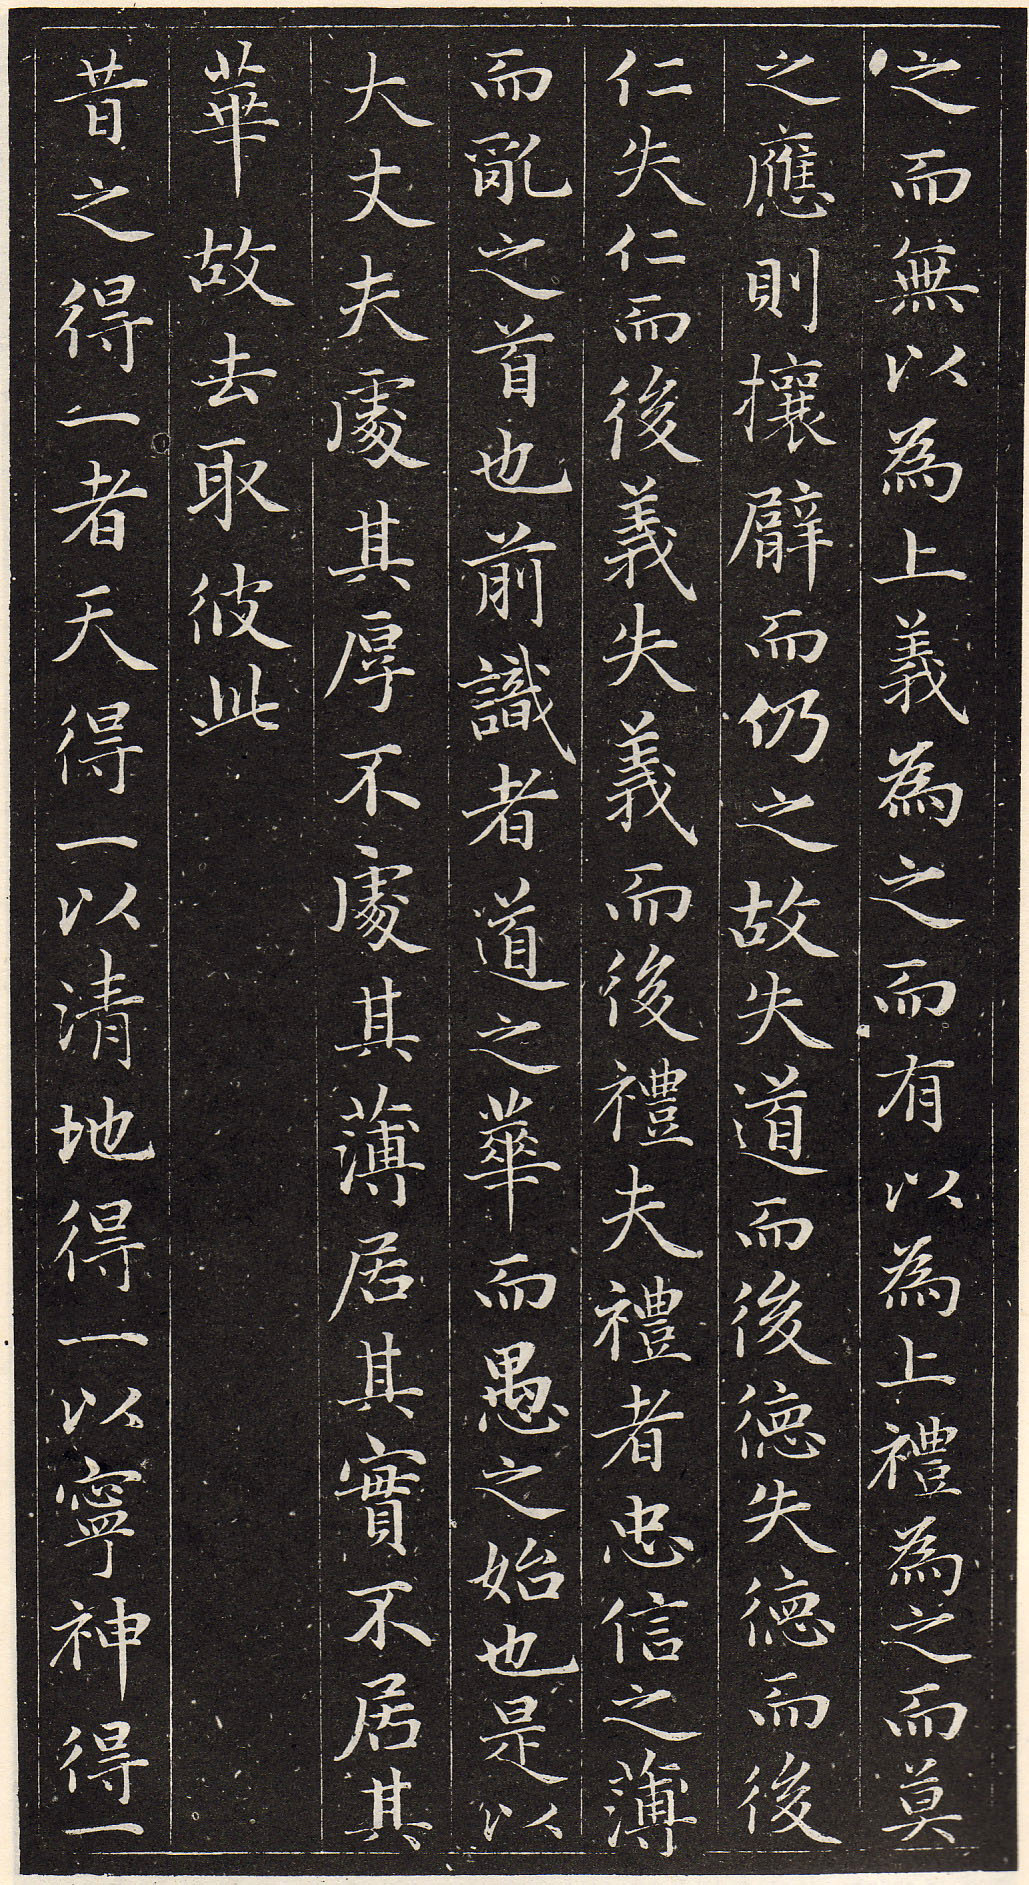 之而無以為上義為之而有以為上禮為之而莫
之應則攘臂而仍之故失道而後德失德而後
仁失仁而後義失義而後禮夫禮者忠信之薄
而亂之首也前識者道之華而愚之始也是以
大丈夫處其厚不處其薄居其實不居其
華故去取彼此
昔之得一者天得一以清地得一以寧神得一